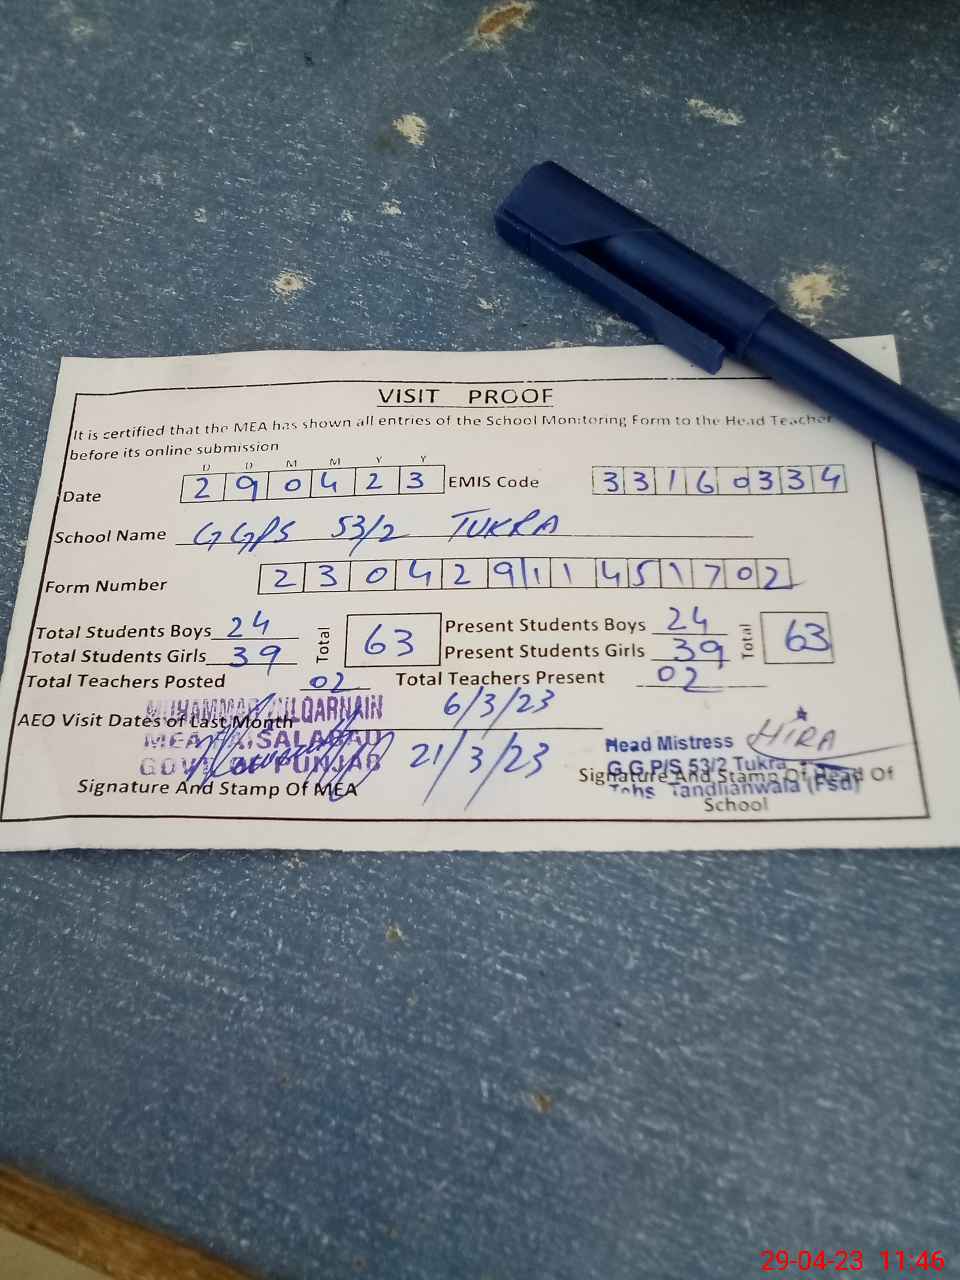 VISIT PROOF
It is certified that the MEA has shown all entries of the School Monitoring Form to the Head Teacher
before its online submission
D D M M Y Y
Date 2 9 0 4 2 3 EMIS Code 3 3 1 6 0 3 3 4
School Name GGPS 53/2 TUKRA
Form Number 2 3 0 4 2 9 1 1 4 5 1 7 0 2
Total Students Boys 24 Total 63 Present Students Boys 24 Total 63
Total Students Girls 39 Present Students Girls 39
Total Teachers Posted 02 Total Teachers Present 02
MUHAMMAD ZULQARNAIN
AEO Visit Dates of Last Month 6/3/23
MEA FAISALABAD 21/3/23 Head Mistress HIRA
GOVT. OF PUNJAB G.G.P/S 53/2 Tukra
Signature And Stamp Of MEA Signature And Stamp Of Head Of
Tehs Tandlianwala (Fsd)
School
29-04-23 11:46